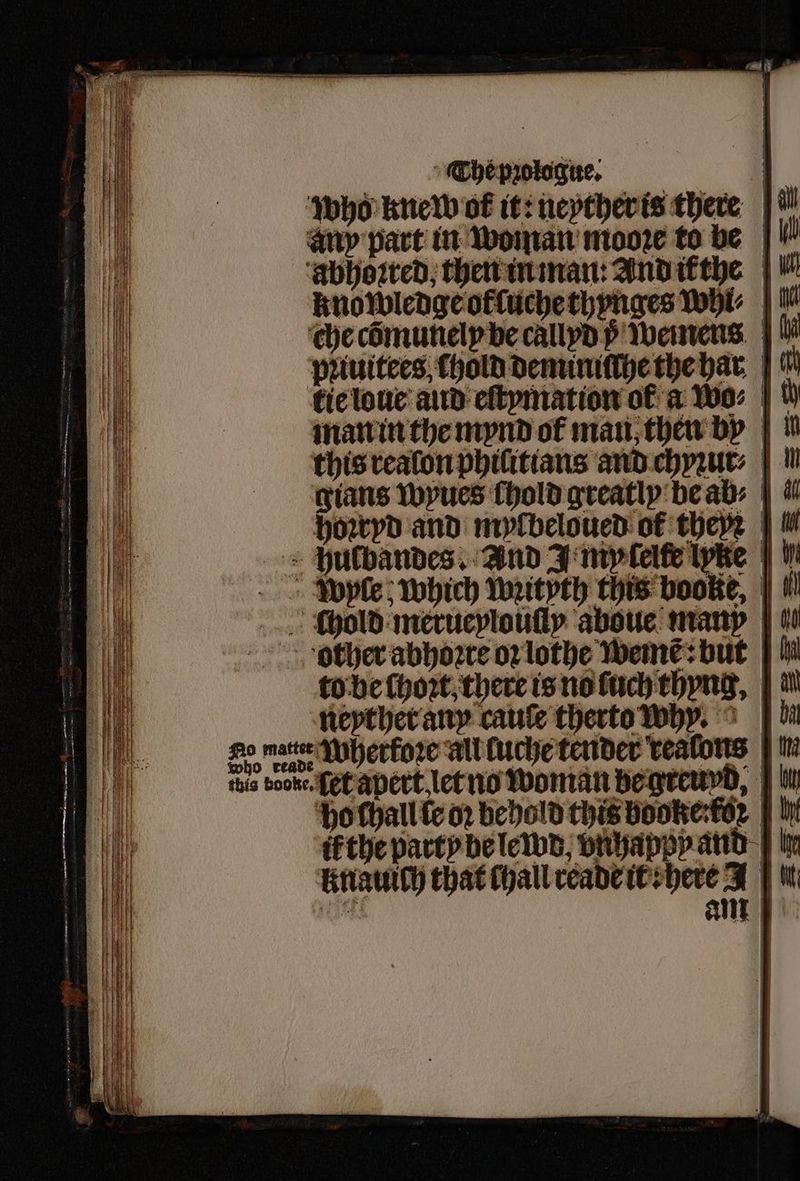 The prologue.
who knew of it: neyther is there
any part in woman moore to be
abhorred, then in man: And if the
knowledge of suche thynges whi-
che cõmunely be callyd þͤ wemens
priuitees, shold deminisshe the har
tie loue and estymation of a wo-
man in the mynd of man, then by
this reason phisitians and chyrur-
gians wyues shold greatly be ab-
horryd and mysbeloued of theyr
husbandes. And I my selfe lyke
wyse, which writyth this booke,
shold merueylously aboue many
other abhorre or lothe wemẽ: but
to be short, there is no such thyng,
neyther any cause therto why.
No matter
who reade
this booke.
Wherfore all suche tender reasons
set apert, let no woman be greuyd,
ho shall se or behold this booke: for
if the party be lewd, vnhappy and
knauish that shall reade it: here I
am